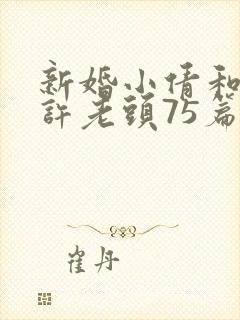 新婚小倩和
許老頭75篇
崔丹